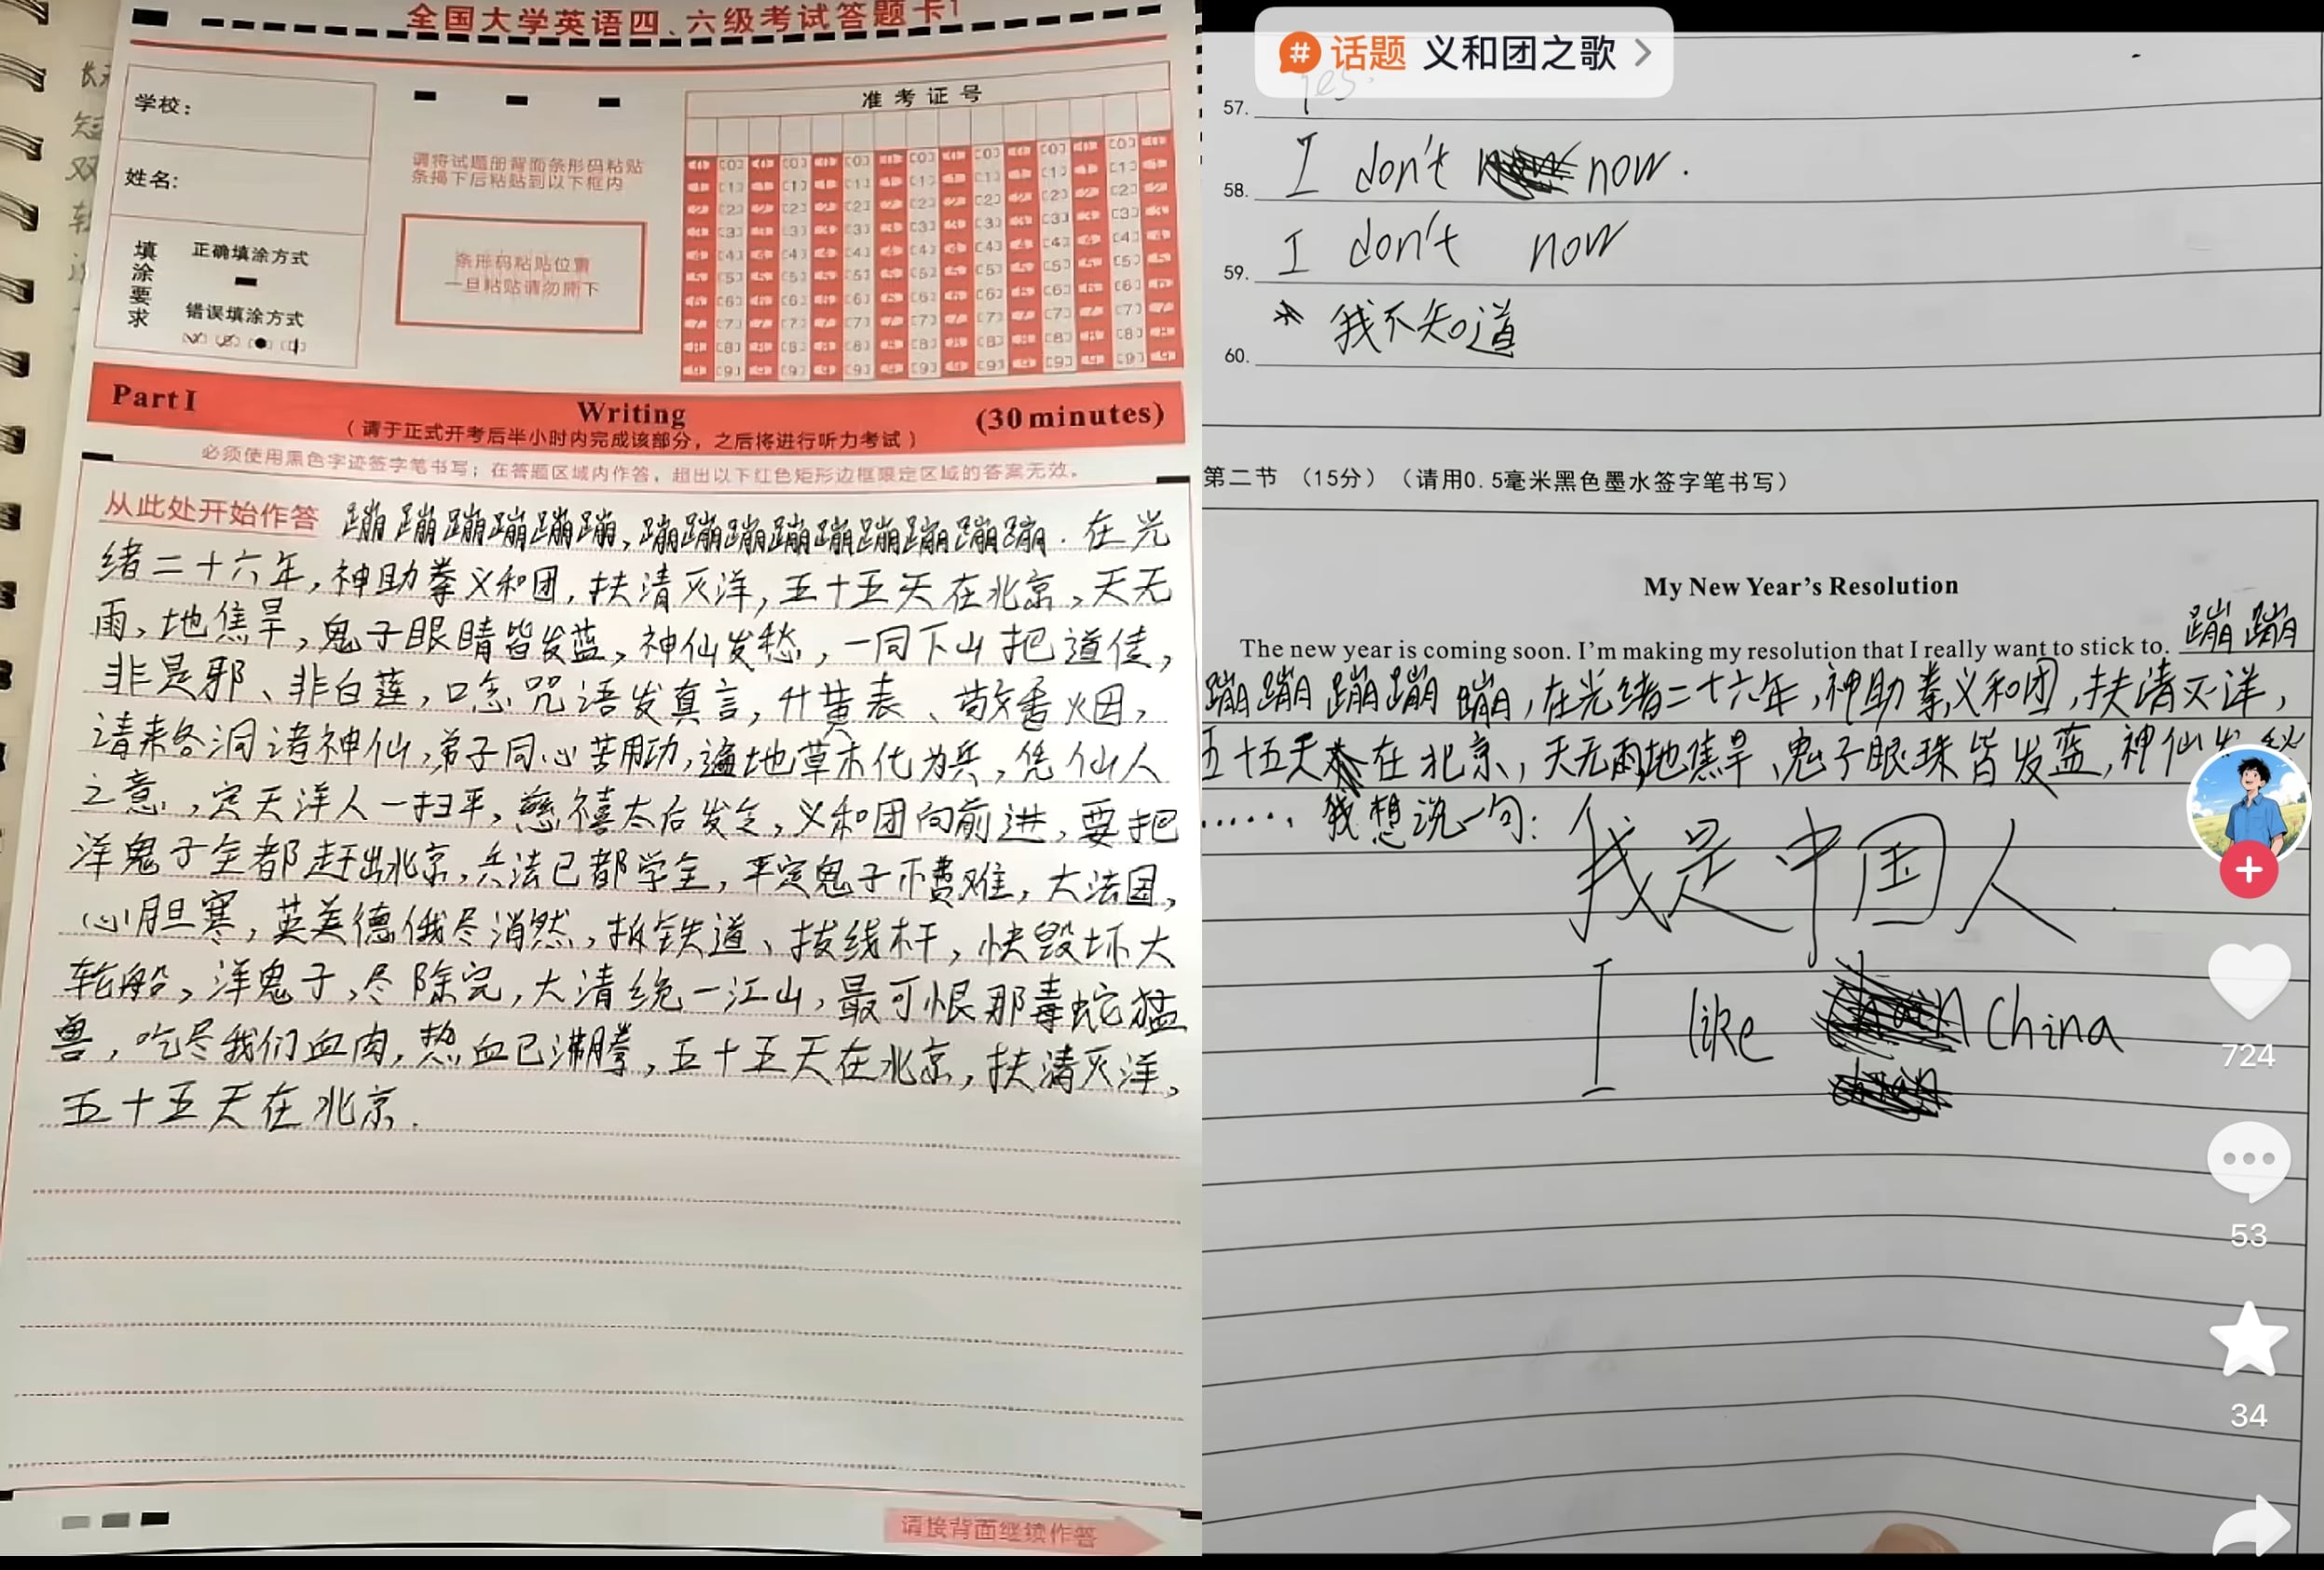 全国大学英语四、六级考试答题卡1
学校：
姓名：
填涂要求
正确填涂方式
错误填涂方式
请将试题册背面条形码粘贴
条揭下后粘贴到以下框内
条形码粘贴位置
一旦粘贴请勿撕下
准考证号
Part I
Writing
(30 minutes)
（请于正式开考后半小时内完成该部分，之后将进行听力考试）
必须使用黑色字迹签字笔书写；在答题区域内作答，超出以下红色矩形边框限定区域的答案无效。
从此处开始作答 蹦蹦蹦蹦蹦蹦，蹦蹦蹦蹦蹦蹦蹦蹦蹦．在光
绪二十六年，神助拳义和团，扶清灭洋，五十五天在北京，天无
雨，地焦旱，鬼子眼睛皆发蓝，神仙发愁，一同下山把道传，
非是邪、非白莲，口念咒语发真言，升黄表、敬香烟，
请来各洞诸神仙，弟子同心苦用功，遍地草木化为兵，凭仙人
之意，定天洋人一扫平，慈禧太后发令，义和团向前进，要把
洋鬼子全都赶出北京，兵法已都学全，平定鬼子不费难，大法国，
心胆寒，英美德俄尽消然，拆铁道、拔线杆，快毁坏大
轮船，洋鬼子，尽除完，大清统一江山，最可恨那毒蛇猛
兽，吃尽我们血肉，热血已沸腾，五十五天在北京，扶清灭洋，
五十五天在北京．
请接背面继续作答
话题 义和团之歌
57.
58. I don't now.
59. I don't now
60. 我不知道
第二节 （15分）（请用0.5毫米黑色墨水签字笔书写）
My New Year's Resolution
The new year is coming soon. I'm making my resolution that I really want to stick to. 蹦蹦
蹦蹦蹦蹦蹦，在光绪二十六年，神助拳义和团，扶清灭洋，
五十五天在北京，天无雨，地焦旱、鬼子眼珠皆发蓝，神仙发愁
……．我想说一句：我是中国人
I like China
724
53
34